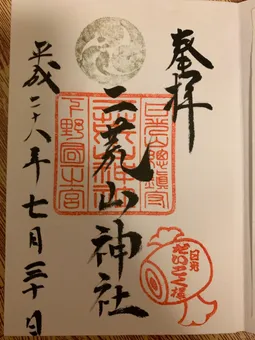 奉拝
日光總鎮守
二荒山神社
下野國一之宮
平成二十八年七月三十日
日光
だいこく様